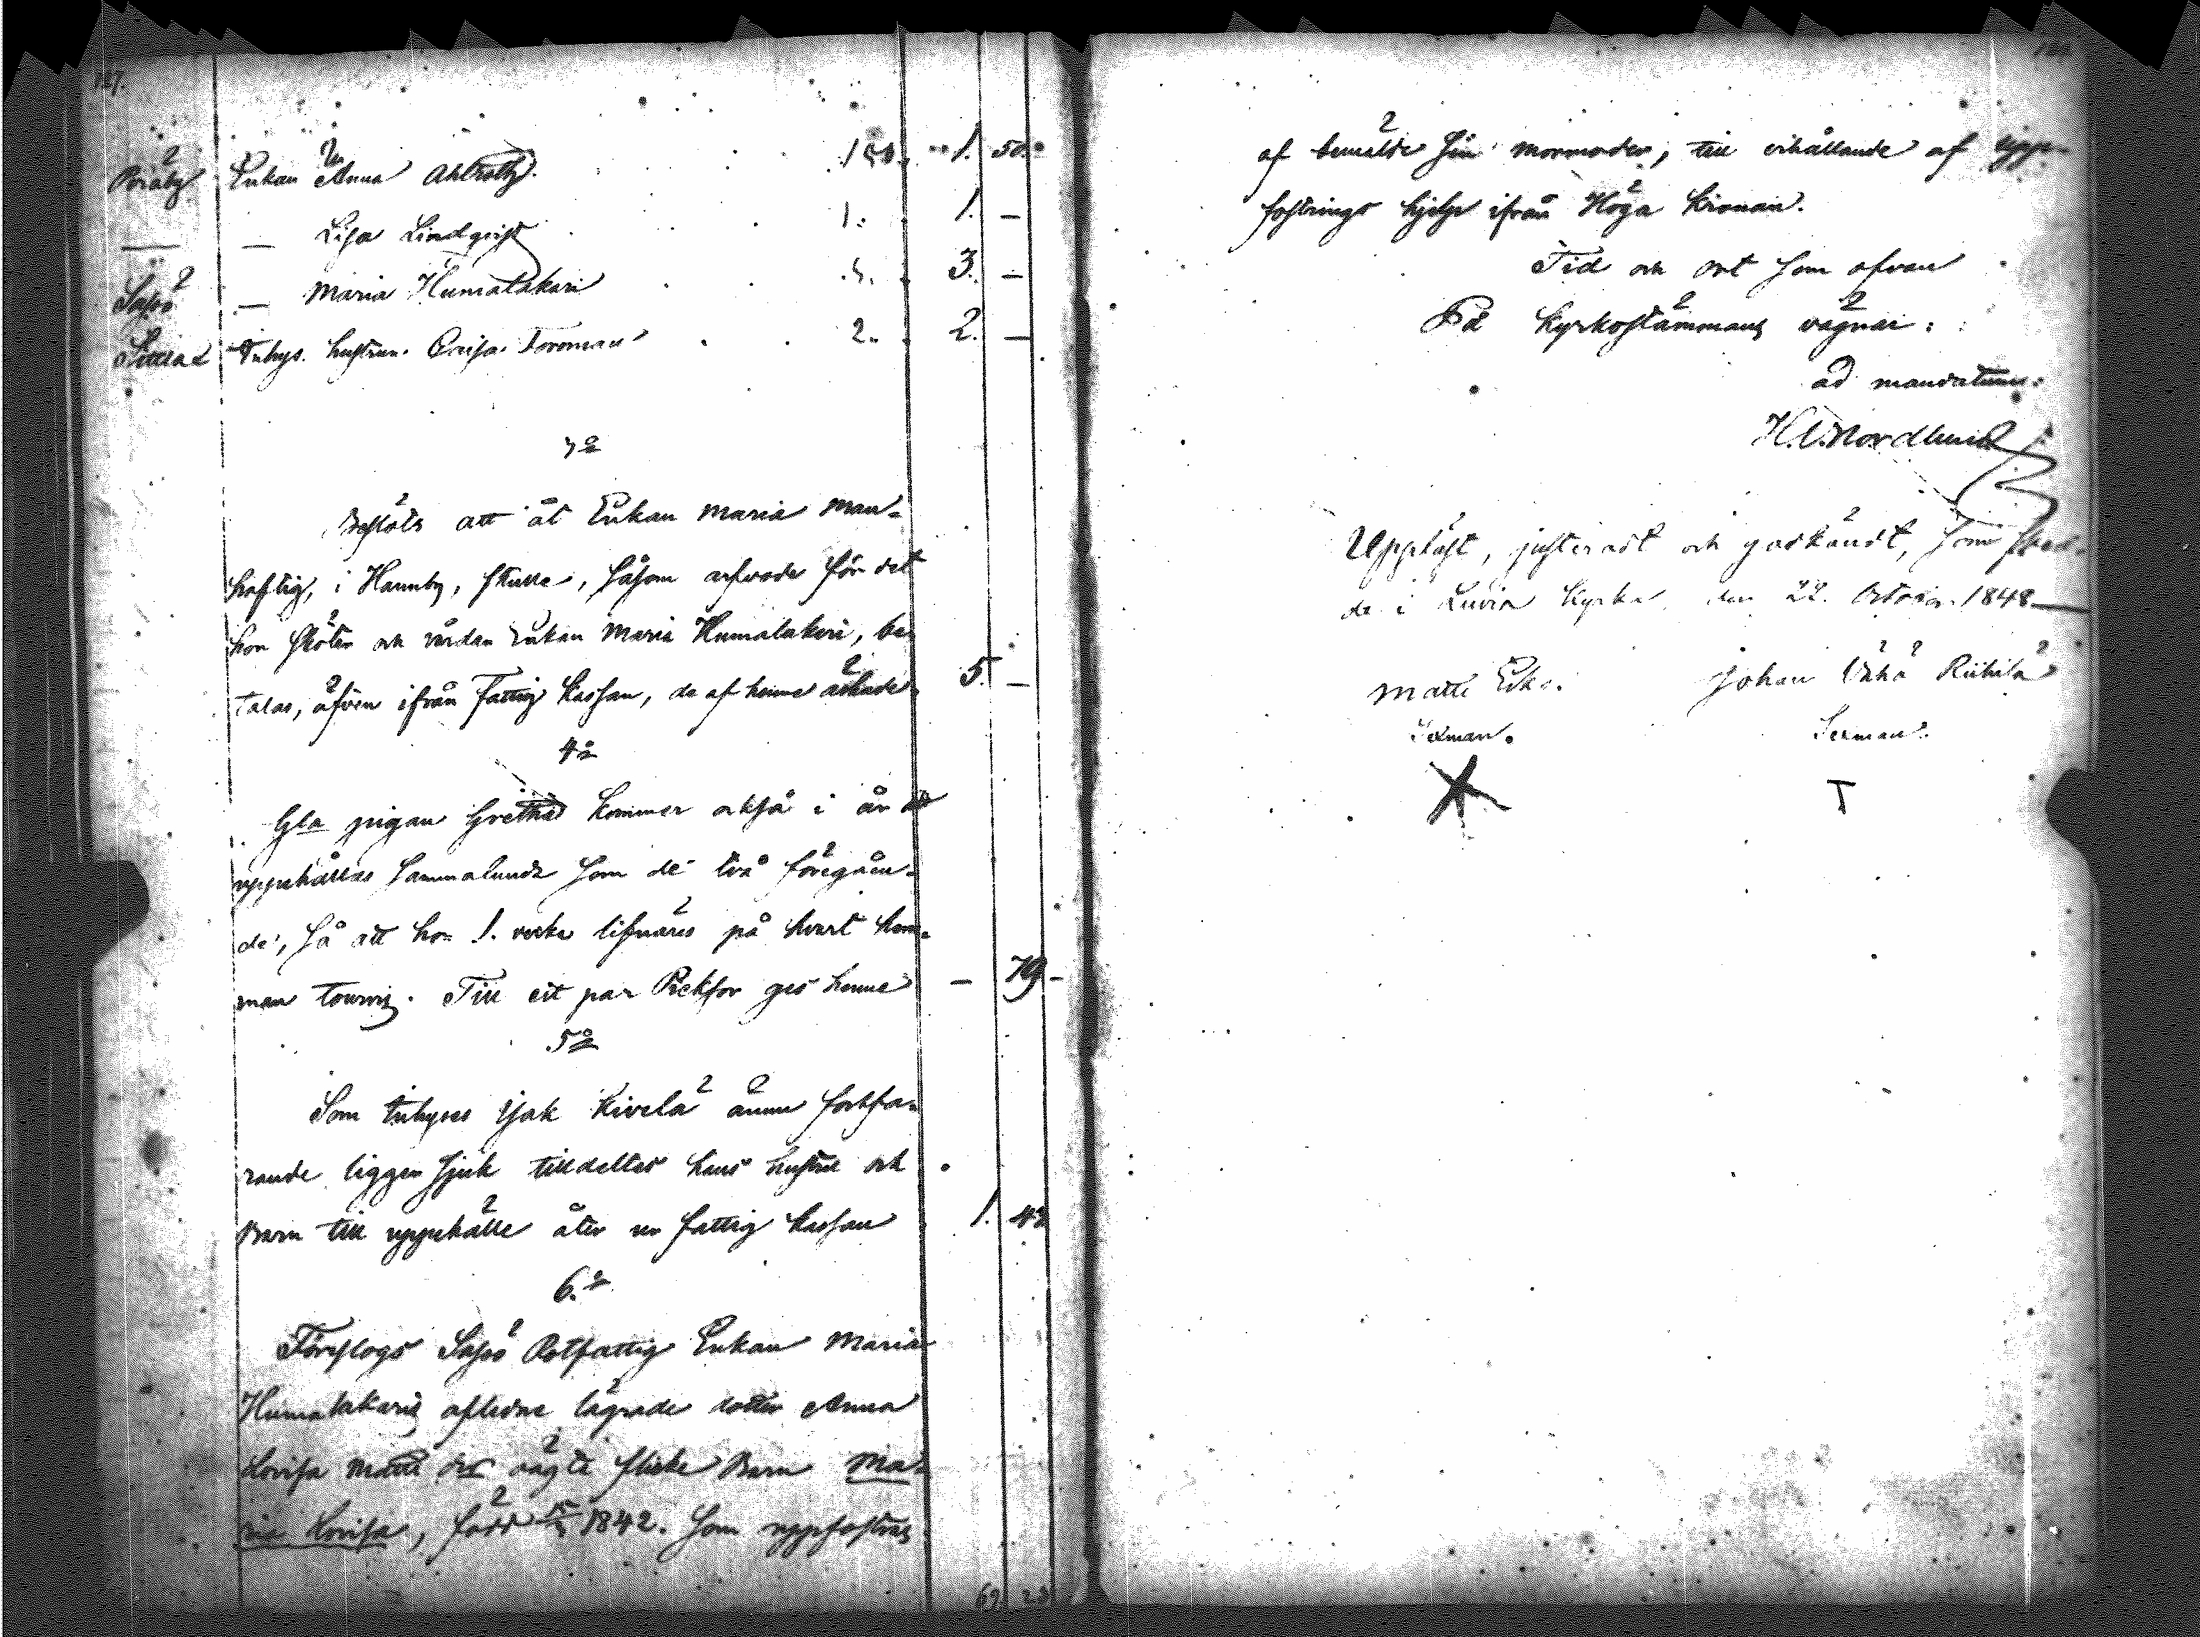 127.
Enkan Anna Ahlroth. 1 50. 1. 50.
— — Lisa Lindqvist 1. 1. —
Sassö — Maria Humalakari 3. 3. —
Inhys. hustrun Caisa Toroman 2. 2. —
3º
Beslöts att åt Enkan Maria Man-
haftig, i Hannby, skulle, såsom arfvode för det
hon sköter och vårdar Enkan Maria Humalakari, be-
talas, äfven ifrån Fattig Kassan, de af henne äskade 5. —
4º
Gla pigan Gretha kommer också i år att
uppehållas sammalunda som de två föregåen-
de, så att hon 1. vecka lifnäres på hvart hem-
man tourvis. Till ett par Picksor ges henne —
5º
Som Inhyses Isak Kivelä ännu fortfa-
rande ligger sjuk tilldeltes hans hustru och
Barn till uppehälle åter ur fattig kassan 1.
6.º
Föreslogs Sassö Rotfattig Enkan Maria
Humalakaris aflidne lägrade dotter Anna
Lovisa Matts dr oägta flicke Barn Ma-
ria Lovisa, född 1842. som uppfostras
af bemälde sin mormoder, till erhållande af upp-
fostrings hjelp ifrån Höga Kronan.
Tid och ort som ofvan
På Kyrkostämmans vägnar:
ad mandatum:
H.A. Nordlund
Uppläst, justeradt och godkändt, som sked-
de i Luvia Kyrka den 22. October 1848
Matti Johan Vähä Riihelä
Sexman. Sexman.
T